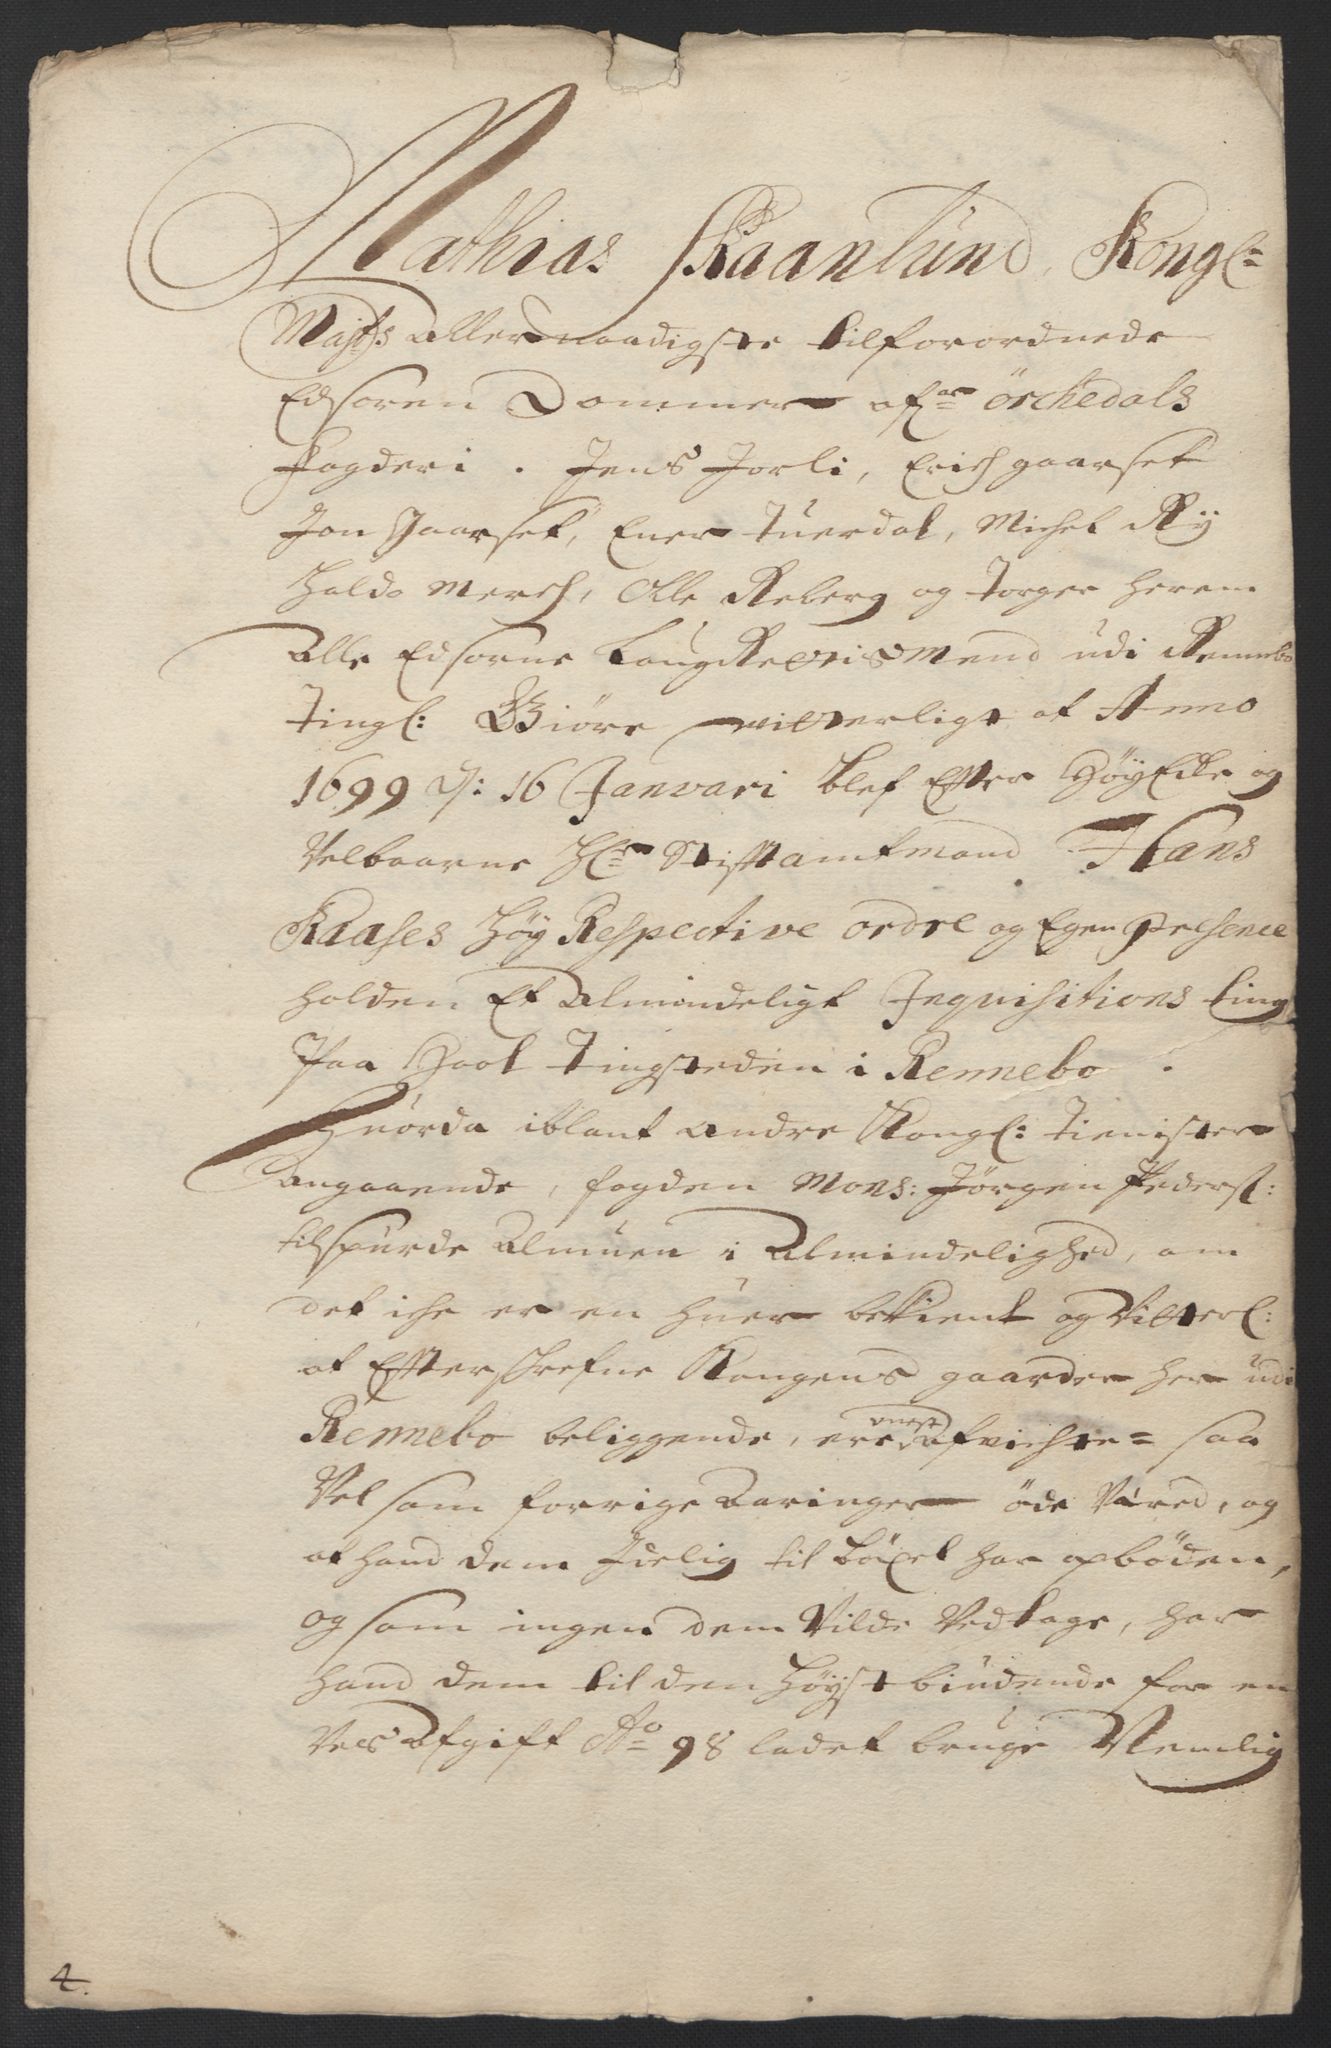 Mathias Skaanlund, Kongl:
Maj:ts Allernaadigste tilforordnede
Edsoren Dommer ofr Örchedals
Fogderi. Jens Jorli, Erich gaarset
Jon Jaarset, Ener Tuerdal, Michel Ry
Haldo Merch, Olle Reberg og Torger Herem
Alle Edsorne Laug Rettis Mend udi Rennebo
Tingl: Giöre witterligt at Anno
1699 d: 16 Janvari blef Efter HöyEdle og
Velbaarne Hr: Stifftamtmand Hans
Kaases Höy Respective ordre og Egen Presence
holden Et Almindeligt Inquisitions ting
Paa Hool Tingsteden i Rennebo.
Huorda iblant andre Kongl: Tienister
Angaaende, fogden Mons: Jörgen Peders:
tilspurde Almuen i Almindelighed, om
det iche er en huer bekient og Vitterl:
at Efterschrefne Kongens gaarder her udi
Rennebo beliggende, ere nest Afvichte= saa
Vel som forrige Aaringer öde Vared, og
at hand dem Idelig til böxel har opböden,
og som ingen dem Vilde Vedtage, har
hand dem til den Höyst biudende for en
Vis Afgift Ao 98 ladet bruge Nemlig
4.